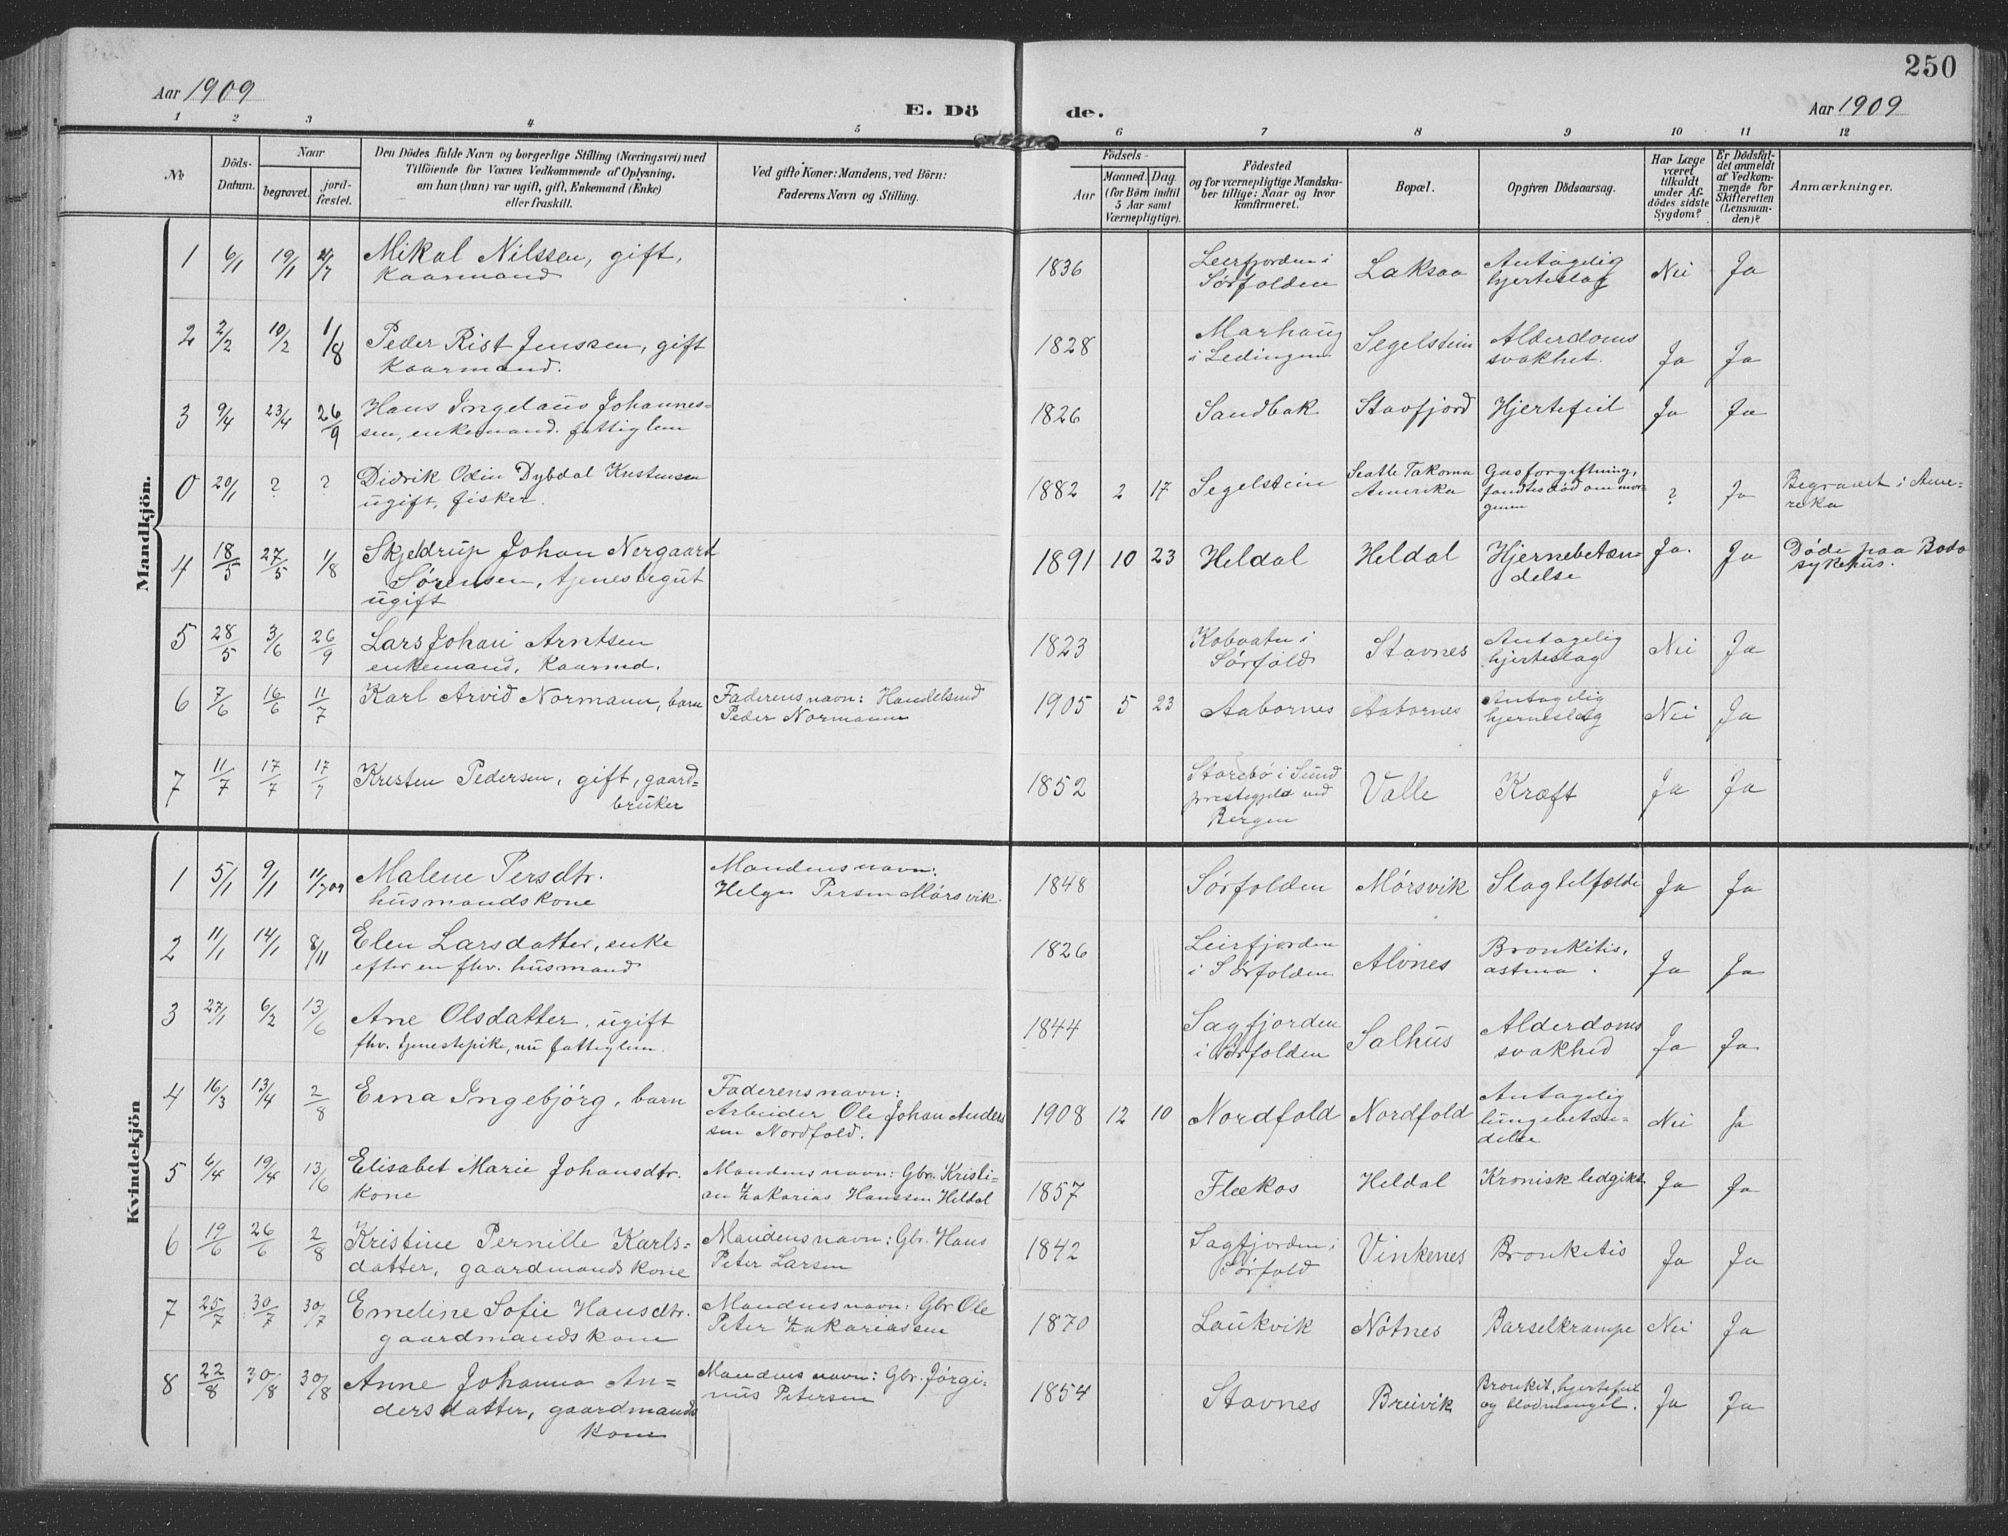 250
Aar 1909
E. Dö
de.
Aar 1909
1 2 3 4 5 6 7 8 9 10 11 12
No
Döds-
Datum.
Naar
begravet.
jord-
fæstet.
Den Dödes fulde Navn og borgerlige Stilling (Næringsvei) med
Tilföiende for Voxnes Vedkommende af Oplysning,
om han (hun) var ugift, gift, Enkemand (Enke)
eller fraskilt.
Ved gifte Koner: Mandens, ved Börn:
Faderens Navn og Stilling.
Födsels-
Aar
Maaned. Dag.
(for Börn indtil
5 Aar samt
Værnepligtige).
Födested
og for værnepligtige Mandska-
ber tillige: Naar og hvor
konfirmeret.
Bopæl.
Opgiven Dödsaarsag.
Har Læge
været
tilkaldt
under Af-
dödes sidste
Sygdom?
Er Dödsfal-
det anmeldt
af Vedkom-
mende for
Skifteretten
(Lensman-
den)?
Anmærkninger.
Mandkjön.
1 6/1 19/1 4/7 Mikal Nilssen, gift, 1836 Leirfjorden i Laksaa Antagelig Nei Ja
kaarmand Sørfolden hjerteslag
2 2/2 10/2 1/8 Peder Rist Jenssen, gift 1828 Marhaug Segelstein Alderdoms Ja Ja
kaarmand. i Lødingen svakhet.
3 9/4 23/4 26/9 Hans Ingelaus Johannes- 1826 Sandbak Stavfjord Hjertefeil Ja Ja
sen, enkemand. fattiglem
0 20/1 ? ? Didrik Odin Dybdal Kristensen 1882 2 17 Segelstein Seatle Takoma Gasforgiftning, ? Ja Begravet i Ame-
ugift, fisker. Amerika fandtes død om mor- rika
genen
4 18/5 27/5 1/8 Skjeldrup Johan Nergaard 1891 10 23 Heldal Heldal Hjernebetæn- Ja. Ja Døde paa Bodø
Sørensen, tjenestegut delse sykehus.
ugift
5 28/5 3/6 26/9 Lars Johan Arntsen 1823 Kobvatn i Stavnes Antagelig Nei Ja
enkemand, kaarmd. Sørfold hjerteslag
6 7/6 16/6 11/7 Karl Arvid Normann, barn Faderens navn: Handelsmd 1905 5 23 Aabornes Aabornes Antagelig Nei Ja
Peder Normann hjerneslag
7 11/7 17/7 17/7 Kristen Pedersen, gift, gaard- 1852 Storebø i Sund Valle Kræft Ja Ja
bruker prestegjeld ved
Bergen
Kvindekjön
1 5/1 9/1 11/7 09 Malene Persdtr. Mandens navn: 1848 Sørfolden Mørsvik Slagtilfælde Ja Ja
husmandskone Helge Persen Mørsvik.
2 11/1 14/1 8/11 Elen Larsdatter, enke 1826 Leirfjorden Alvnes Bronkitis, Ja Ja
efter en fhv. husmand i Sørfolden astma.
3 27/1 6/2 13/6 Ane Olsdatter, ugift 1844 Sagfjorden Salhus Alderdoms Ja Ja
fhv. tjenestepike, nu fattiglem. i Sørfolden svakhed
4 16/3 13/4 2/8 Erna Ingebjørg, barn Faderens navn: 1908 12 10 Nordfold Nordfold Antagelig Nei Ja
Arbeider Ole Johan Anders lungebetæn-
sen Nordfold. delse
5 6/4 19/4 13/6 Elisabet Marie Johansdtr. Mandens navn: Gbr. Kristi- 1857 Flækos Heldal Kronisk ledgikt Ja Ja
kone an Zakarias Hanssen Heldal
6 19/6 26/6 2/8 Kristine Pernille Karls- Mandens navn: Gbr. Hans 1842 Sagfjorden i Vinkenes Bronkitis Ja Ja
datter, gaardmandskone Peter Larsen Sørfold
7 25/7 30/7 30/7 Emeline Sofie Hansdtr. Mandens navn: Gbr Ole 1870 Laukvik Nøtnes Barselkrampe Nei Ja
gaardmandskone Peter Zakariassen
8 22/8 30/8 30/8 Anne Johanna An- Mandens navn: Gbr. Jørgi- 1854 Stavnes Breivik Bronkit, hjertefeil Ja Ja
dersdatter, gaardmands nus Petersen og blodmangel.
kone